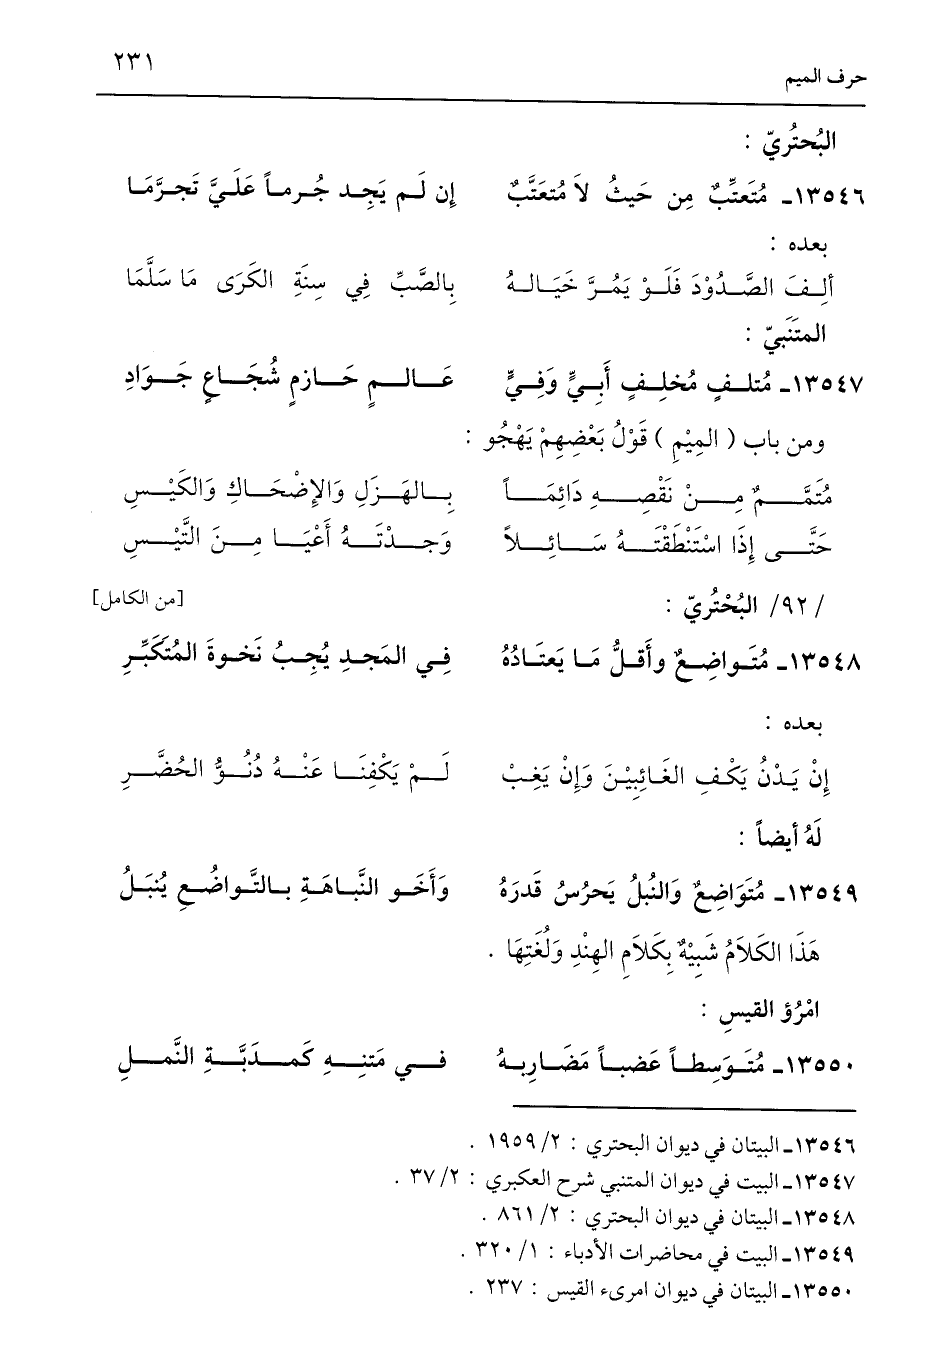 حرف الميم ٢٣١
البُحتُريّ :
١٣٥٤٦ـ مُتَعتِّبٌ مِن حَيثُ لاَ مُتعَتَّبٌ إن لَم يَجِد جُرماً عَلَيَّ تَجرَّمَا
بعده :
ألِفَ الصَّدُوْدَ فَلَوْ يَمُرَّ خَيَالهُ بِالصَّبِّ فِي سِنَةِ الكَرَى مَا سَلَّمَا
المتَنَبيّ :
١٣٥٤٧ـ مُتلفٍ مُخلِفٍ أَبيٍّ وَفِيٍّ عَالمٍ حَازمٍ شُجَاعٍ جَوَادِ
ومن باب ( المِيْمِ ) قَوْلُ بَعْضِهِمْ يَهْجُو :
مُتَمَّمٌ مِنْ نَقْصِهِ دَائِمَاً بِالهَزَلِ وَالإِضْحَاكِ وَالكَيْسِ
حَتَّى إِذَا اسْتَنْطَقْتَهُ سَائِلاً وَجدْتَهُ أَعْيَا مِنَ التَّيْسِ
/٩٢/ البُحْتُريّ : [من الكامل]
١٣٥٤٨ـ مُتَواضِعٌ وأَقلُّ مَا يَعتَادُهُ فِي المَجدِ يُجِبُ نَخوةَ المُتَكَبِّرِ
بعده :
إِنْ يَدْنُ يَكْفِ الغَائِبِيْنَ وَإِنْ يَغِبْ لَمْ يَكْفِنَا عَنْهُ دُنُوُّ الحُضَّرِ
لَهُ أيضاً :
١٣٥٤٩ـ مُتَوَاضِعٌ وَالنُبلُ يَحرُسُ قَدرَهُ وَأَخَو النَّبَاهَةِ بالتَّواضُعِ يُنبَلُ
هَذَا الكَلاَمُ شَبِيْهٌ بِكَلاَمِ الهِنْدِ وَلُغَتِهَا .
امْرُؤ القيسِ :
١٣٥٥٠ـ مُتَوَسِطاً عَضباً مَضَاربهُ في مَتنِهِ كَمدَبَّةِ النَّملِ
١٣٥٤٦ـ البيتان في ديوان البحتري : ٢/ ١٩٥٩ .
١٣٥٤٧ـ البيت في ديوان المتنبي شرح العكبري : ٢/ ٣٧ .
١٣٥٤٨ـ البيتان في ديوان البحتري : ٢/ ٨٦١ .
١٣٥٤٩ـ البيت في محاضرات الأدباء : ١/ ٣٢٠ .
١٣٥٥٠ـ البيتان في ديوان امرىء القيس : ٢٣٧ .